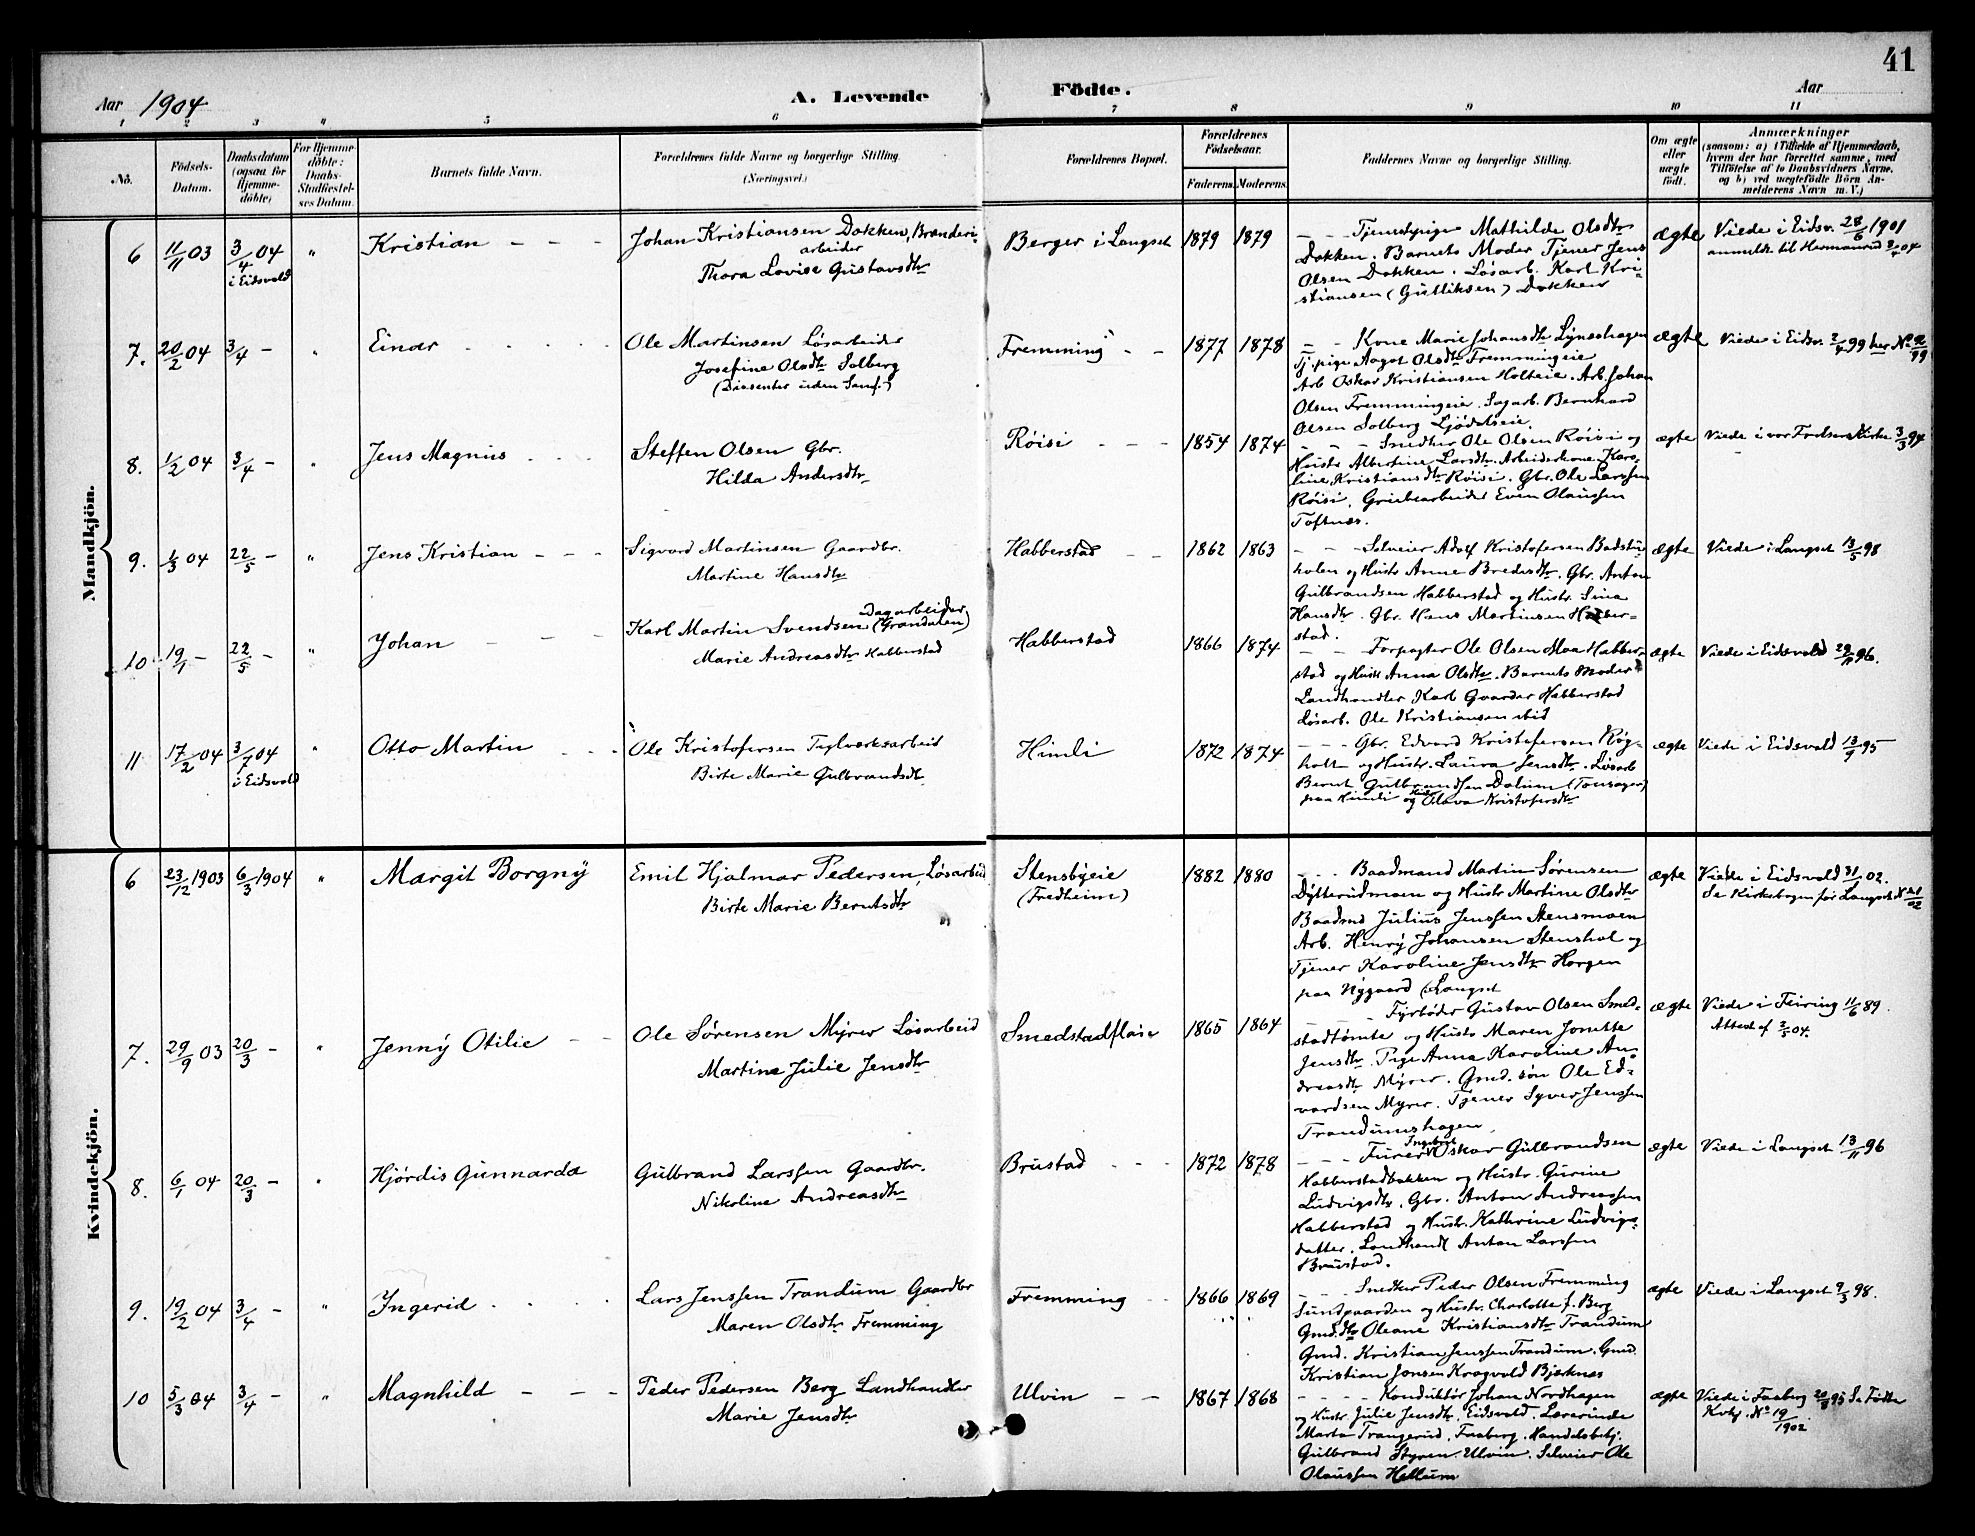 41
Aar 1904
A. Levende Födte.
Aar
1 2 3 4 5 6 7 8 9 10 11
No.
Födsels-Datum.
Daabsdatum (ogsaa for Hjemme-döbte)
For Hjemme-döbte: Daabs-Stadfæstel-ses Datum.
Barnets fulde Navn.
Forældrenes fulde Navne og borgerlige Stilling.
(Næringsvei.)
Forældrenes Bopæl.
Forældrenes Födselsaar.
Faderens. Moderens.
Faddernes Navne og borgerlige Stilling.
Om ægte eller uægte födt.
Anmærkninger
(saasom: a) i Tilfælde af Hjemmedaab, hvem der har forrettet samme, med Tilföielse af to Daabsvidners Navne, og b) ved uægtefödte Börn An-melderens Navn m. V.)
Mandkjön.
6 11/11 03 3/4 04 i Eidsvold " Kristian - - -
Johan Kristiansen Dokken, Brænderi-
arbeider
Thora Lovise Gustavsdtr
Berger i Langset 1879 1879
- - Tjenestepige Mathilde Olsdtr
Dokken. Barnets Moder Tjener Jens
Olsen Dokken. Løsarb. Karl Kri-
stiansen (Gulliksen) Dokken
ægte Viede i Eidsv. 28/6 1901
anmeldt til Hermanrud 2/4 04
7. 20/2 04 3/4 - " Einar
Ole Martinsen Løsarbeider
Josefine Olsdtr Solberg
(Dissenter uden Samf.)
Fremming - - 1877 1878
- - Kone Marie Johansdtr Lyneshagen
Tj.pige Aagot Olsdtr Fremmingeie
Arb Oskar Kristiansen Holteie. Arb. Johan
Olsen Fremmingeie. Sagarb. Bernhard
Olsen Solberg Ljødalseie.
ægte Viede i Eidsv. 2/4 99 her No 2/99
8. 1/2 04 3/4 - " Jens Magnus
Steffen Olsen Gbr.
Hilda Andersdtr
Røisi - - - 1854 1874
- - - Smedker Ole Olsen Røisi og
Hustr Albertine Larsdtr. Arbeiderkone Karo-
line Kristiansdtr Røisi. Gbr. Ole Larssen
Røisi. Grubearbeider Even Olaussen
Toftnæs.
ægte Viede i vor Frelsers Kirke 3/3 94
9. 1/3 04 22/5 - " Jens Kristian - - -
Sigvard Martinsen Gaardbr.
Martine Hansdtr
Habberstad - - 1862 1863
- - - Selveier Adolf Kristofersen Badstu-
holen og Hustr Anne Bredesdtr. Gbr. Anton
Gulbrandsen Habberstad og Hustr. Sina
Hansdtr. Gbr. Hans Martinsen Habber-
stad.
ægte Viede i Langset 13/5 98
10 19/1 - 22/5 - " Johan - - -
Dagarbeider
Karl Martin Svendsen (Grandalen)
Marie Andreasdtr Habberstad
Habberstad 1866 1874
- - - Forpagter Ole Olsen Moa Habber-
stad og Hustr Anna Olsdtr. Barnets Moder
Landhandler Karl Gaarder Habberstad
Løsarb. Ole Kristiansen ibid
ægte Viede i Eidsvold 29/11 96.
11 17/2 04 3/7 04 i Eidsvold " Otto Martin - - -
Ole Kristofersen Teglverksarbeid
Birte Marie Gulbrandsdtr
Himli 1872 1874
- - - Gbr. Edvard Kristofersen Røg-
holt og Hustr. Laura Jensdtr. Løsarb
Bernt Gulbrandsen Dalum (Tonsager)
paa Himli og Olava Kristofersdtr
ægte Viede i Eidsvold 13/9 95
Kvindekjön.
6 23/12 1903 6/3 1904 " Margit Borgny
Emil Hjalmar Pedersen, Løsarbeid
Birte Marie Berntsdtr
Stensbyeie
(Fredheim)
1882 1880
- - - Baadmand Martin Sørensen
Dytterudmoen og Hustr Martine Olsdtr
Baadmd Julius Jenssen Stensmoen
Arb. Henry Johansen Stenshol og
Tjener Karoline Jensdtr Horgen
paa Nygaard (Langset
ægte Viede i Eidsvold 31/ 02.
Se Kirkebogen for Langset No 21/02
7. 29/9 03 20/3 - " Jenny Otilie - -
Ole Sørensen Myrer Løsarbeid
Martine Julie Jensdtr
Smedstadflaie 1865 1864
- - - Fyrbøder Gustav Olsen Smed-
stadtomte og Hustr Maren Jonette
Jensdtr. Pige Anna Karoline An-
dreasdtr Myrer. Gmd. søn Ole Ed-
vardsen Myrer. Tjener Syver Jenssen
Trandumshagen.
ægte Viede i Feiring 11/6 89.
Attest af 2/5 04.
8. 6/1 04 20/3 - " Hjördis Gunnarda
Gulbrand Larssen Gaardbr.
Nikoline Andreasdtr
Brustad - - - 1872 1878
- - - Furer Oskar Gulbrandsen
Habberstadbakken og Hustr. Gurine
Ludvigsdtr. Gbr. Anton Andreassen
Habberstad og Hustr. Kathrine Ludvigs-
datter. Landhandl Anton Larssen
Brustad.
ægte Viede i Langset 13/11 96
9. 19/2 04 3/4 - " Ingerid
Lars Jenssen Trandum Gaardbr
Maren Olsdtr Fremming
Fremming - - 1866 1869
- - - Snedker Peder Olsen Fremming
Sundgaarden og Hustr. Charlotte f. Berg
Gmd.dtr Oleane Kristiansdtr Trandum
Gmd. Kristian Jenssen Trandum. Gmd.
Kristian Jensen Kragvold Bjerknes
ægte Viede i Langset 9/3 98.
10 5/3 04 3/4 - " Magnhild - - -
Peder Pedersen Berg Landhandler
Marie Jensdtr
Ulvin - - 1867 1868
- - - - Konduktør Johan Nordhagen
og Hustr Julie Jensdtr. Eidsvold. Lærerinde
Marta Trangerud, Faaberg. Handelsbetj.
Gulbrand Styren. Ulvin. Selveier Ole
Olaussen Hellum
ægte Viede i Faaberg 20/8 93 Se Fødte
Kvkj. No 19/1902.